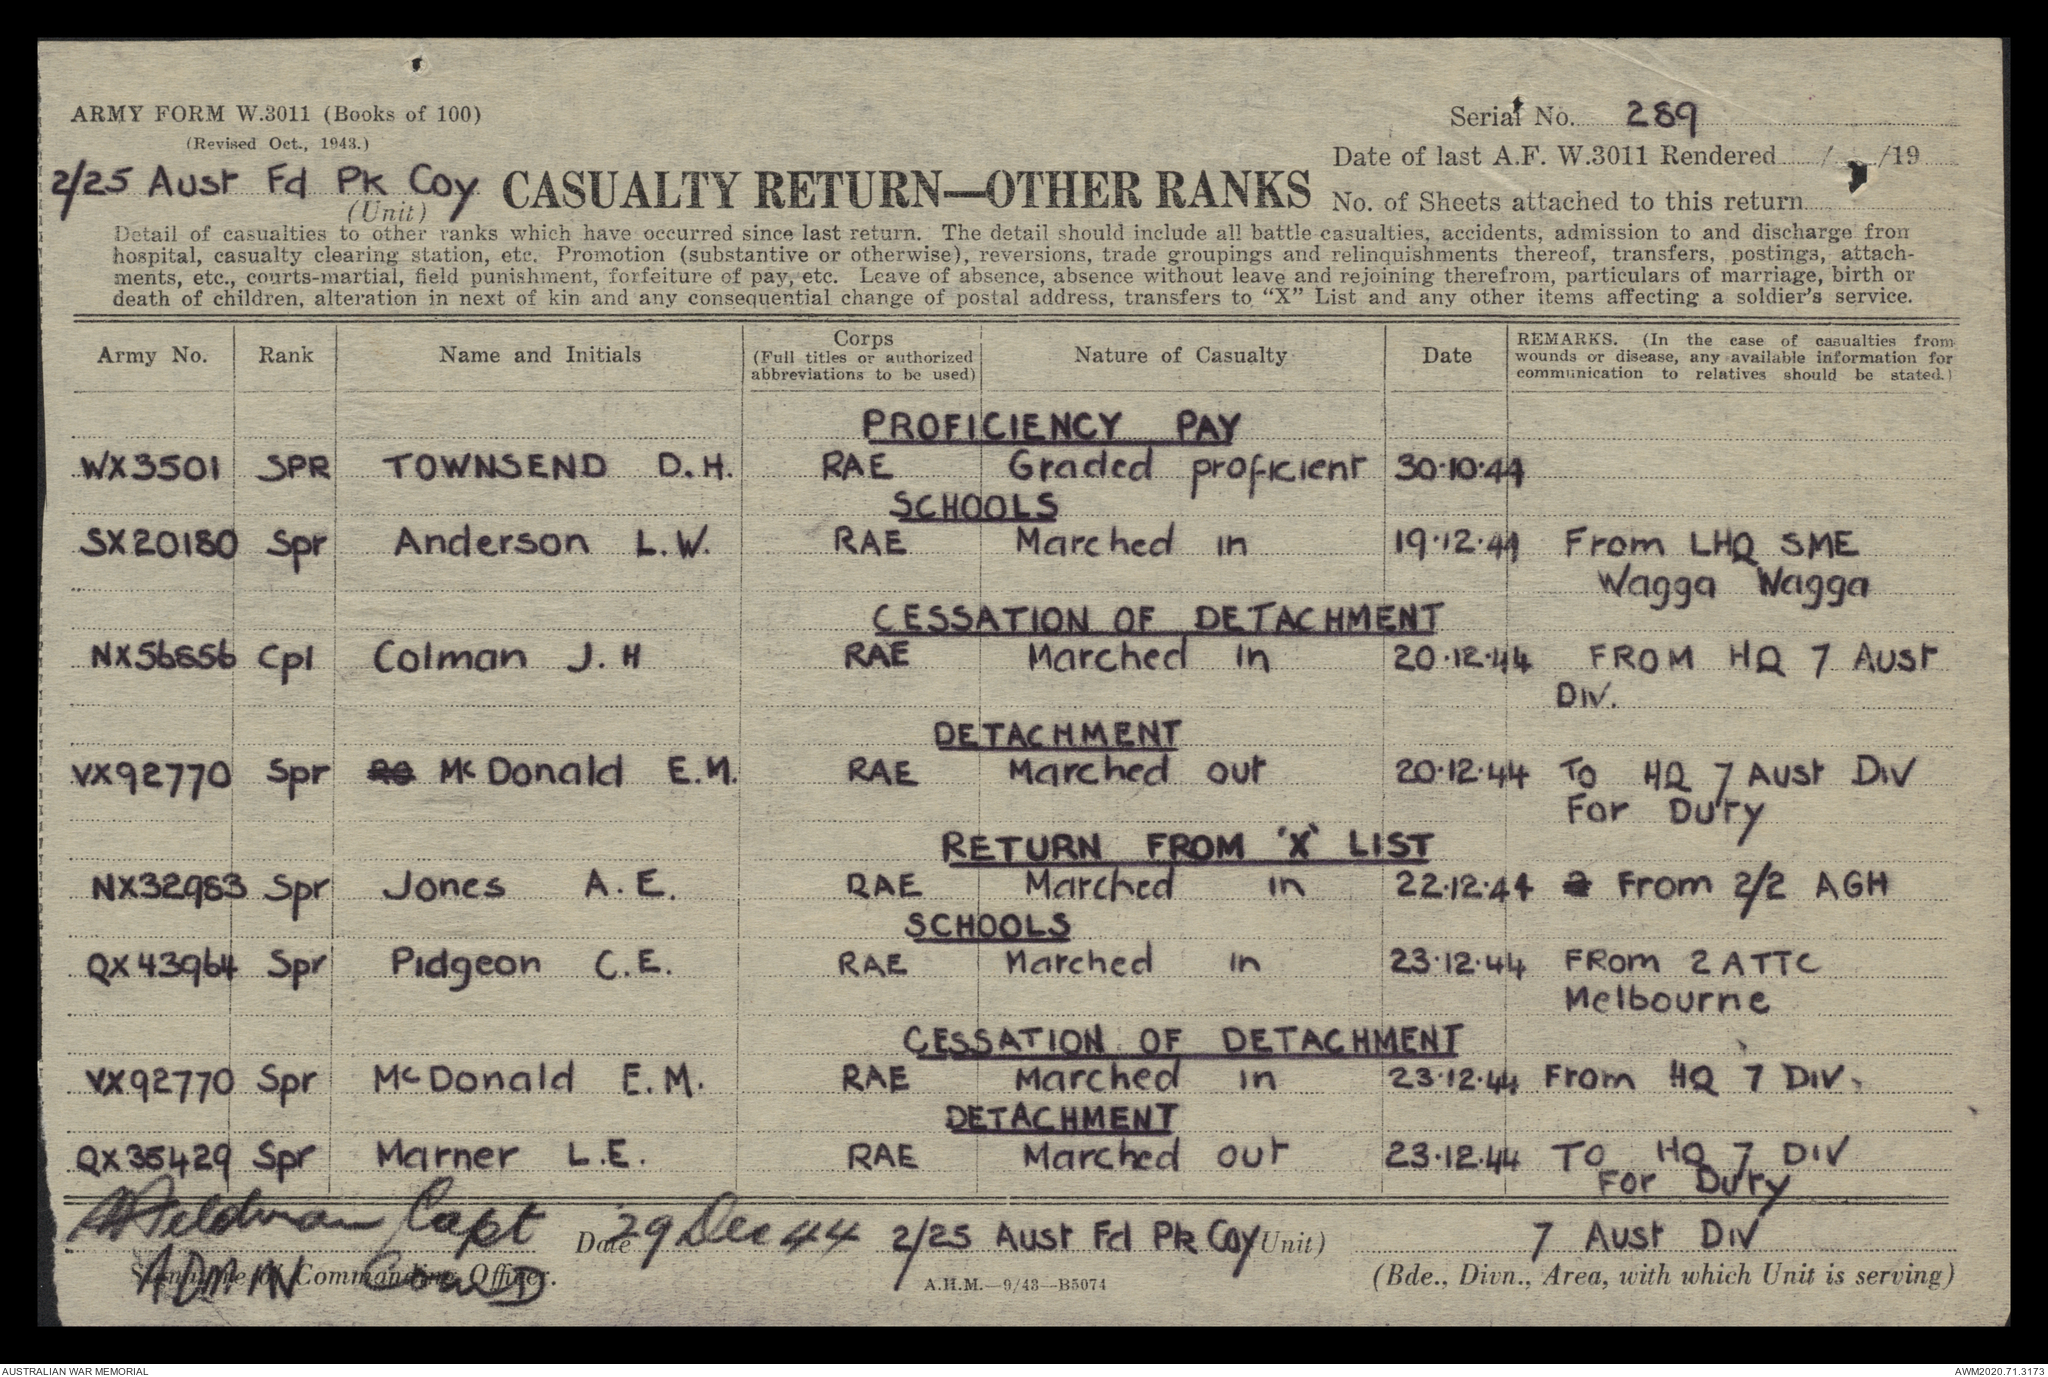 ARMY FORM W.3011 (Books of 100)
(Revised Oct., 1943.)
Serial No. 289
Date of last A.F. W.3011 Rendered / /19
2/25 Aust Fd Pk Coy
(Unit)
CASUALTY RETURN—OTHER RANKS
No. of Sheets attached to this return
Detail of casualties to other ranks which have occurred since last return. The detail should include all battle casualties, accidents, admission to and discharge from
hospital, casualty clearing station, etc. Promotion (substantive or otherwise), reversions, trade groupings and relinquishments thereof, transfers, postings, attach-
ments, etc., courts-martial, field punishment, forfeiture of pay, etc. Leave of absence, absence without leave and rejoining therefrom, particulars of marriage, birth or
death of children, alteration in next of kin and any consequential change of postal address, transfers to "X" List and any other items affecting a soldier's service.
Army No. Rank Name and Initials Corps (Full titles or authorized abbreviations to be used) Nature of Casualty Date REMARKS. (In the case of casualties from wounds or disease, any available information for communication to relatives should be stated.)
PROFICIENCY PAY
WX3501 SPR TOWNSEND D.H. RAE Graded proficient 30.10.44
SCHOOLS
SX20180 Spr Anderson L.W. RAE Marched in 19.12.44 From LHQ SME
Wagga Wagga
CESSATION OF DETACHMENT
NX56856 Cpl Colman J.H RAE Marched in 20.12.44 FROM HQ 7 Aust
DIV.
DETACHMENT
VX92770 Spr McDonald E.M. RAE Marched out 20.12.44 To HQ 7 Aust Div
For Duty
RETURN FROM 'X' LIST
NX32983 Spr Jones A.E. RAE Marched in 22.12.44 From 2/2 AGH
SCHOOLS
QX43964 Spr Pidgeon C.E. RAE Marched in 23.12.44 FRom 2 ATTC
Melbourne
CESSATION OF DETACHMENT
VX92770 Spr McDonald E.M. RAE Marched in 23.12.44 From HQ 7 DIV.
DETACHMENT
QX35429 Spr Marner L.E. RAE Marched out 23.12.44 TO HQ 7 DIV
For Duty
Feldman Capt Date 29 Dec 44 2/25 Aust Fd Pk Coy (Unit) 7 Aust Div
Signature of Commanding Officer.
ADMIN Comd
A.H.M.—9/43—B5074
(Bde., Divn., Area, with which Unit is serving)
AUSTRALIAN WAR MEMORIAL
AWM2020.71.3173